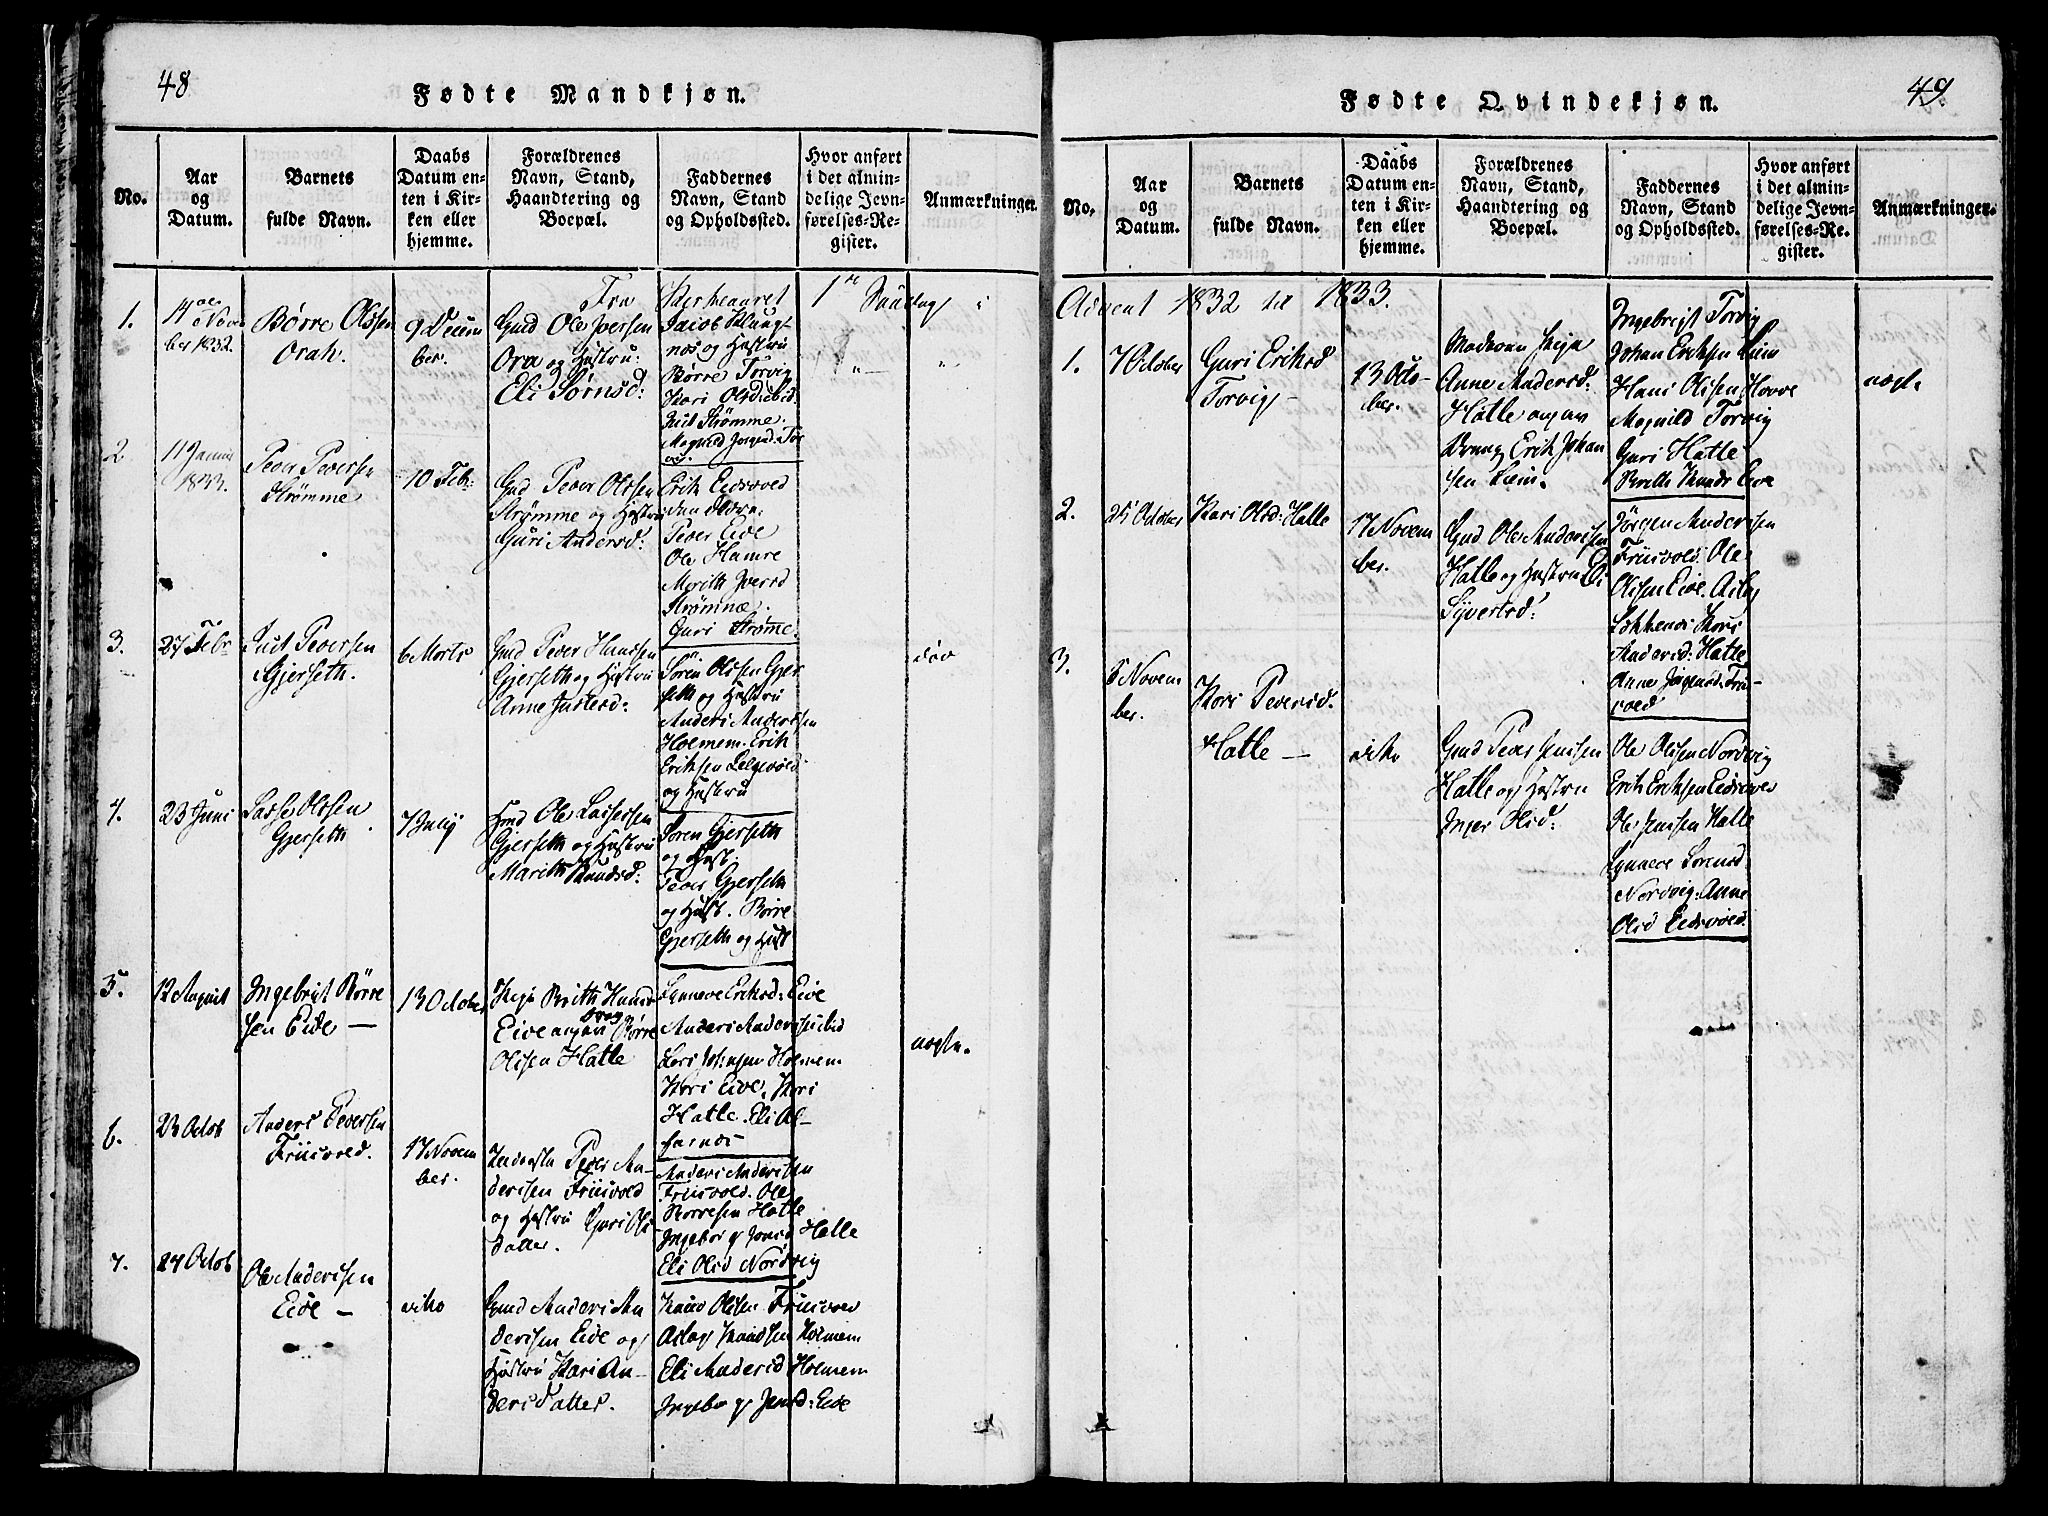 48
Fødte Mandkjøn.
No.
Aar
og
Datum.
Barnets
fulde Navn.
Daabs
Datum en-
ten i Kir-
ken eller
hjemme.
Forældrenes
Navn, Stand,
Haandtering og
Boepæl.
Faddernes
Navn, Stand
og Opholdssted.
Hvor anført
i det almin-
delige Jevn-
førelses-Re-
gister.
Anmærkninger.
Fra Kirkeaaret 1ste Søndag i
1.
14de Novem
ber 1832.
Børre Olssen
Orak.
9 Decem
ber.
Gmd Ole Iversen
Ora og Hustru:
Eli Sørnsd:
Jacob Klung-
nes og Hustru
Børre Torvig
Kari Olsd
Strømme.
Magnild
2
11 Janua
1833.
Peder Pedersen
Strømme
10 Febr:
Gmd Peder Olssen
Strømme og Hustru
Guri Andersd:
Erik Eidsvoed
Peder Eide
Ole Hamre
Marith Iversd
Strømme.
Guri Strømme.
3.
27 Febr
Pedersen
Gjerseth.
6 Marts
Gmd Peder Hanssen
Gjerseth og Hustru
Anne
død
Sören Olssen Gjer
seth og Hustru
Anders Anderssen
Holmem. Erik
Eriksen
og Hustru
4.
23 Juni
Lasse Olssen
Gjerseth
7 July
Gmd Ole Lassessen
Gjerseth og Hustru
Marith Knudsd:
Sören Gjerseth
og Hust.
Peder Gjerseth
og Hust. Børre
Gjerseth og Hust
5.
12 August
Ingebrigt Børre
sen Eide —
13 October
Pige Brith Knuds
Eide angav Børre
Olssen Hatle
Synneve Eriksd: Eide
Anders Anderssen
Holmem
Kari Eide, Kari
Hatle. Eli
uægte.
6.
23 Octob
Anders Pedersen
Friisvold.
17 Novem
ber.
Peder An-
dersen Friisvold
og Hustru Guri Ols
datter.
Anders Anderssen
Friisvold. Ole
Børresen Hatle
Ingeborg Jonsd Hatle
Eli Olsd Nordvig
7.
24 Octob
Ole Anderssen
Eide —
dito
Gmd Anders An
derssen Eide og
Hustru Kari An-
ders Datter.
Knud Olssen Friisvold
Aslag Knudsen Holmem
Eli Andersd Holmem
Ingeborg Jensd: Eide
49
Fødte Qvindekjøn.
No.
Aar
og
Datum.
Barnets
fulde Navn.
Daabs
Datum en-
ten i Kir-
ken eller
hjemme.
Forældrenes
Navn, Stand,
Haandtering og
Boepæl.
Faddernes
Navn, Stand
og Opholdssted.
Hvor anført
i det almin-
delige Jevn-
førelses-Re-
gister.
Anmærkninger.
Advent 1832 til 1833.
1.
7 October
Guri Eriksd
Torvig —
13 Octo-
ber.
Pige
Anne Andersd:
Hatle angav
Dreng Erik Johan
sen Liem.
Ingebrigt Torvig
Johan Eriksen Liem
Hans Olssen Hovve
Magnild Torvig
Guri Hatle
Brith Knuds Eide
uægte
2.
25 October
Kari Olsd: Hatle
17 Novem
ber.
Gmd Ole Anderssen
Hatle og Hustru
Syversd:
Jörgen Anderssen
Friisvold. Ole
Olssen Eide.
Kari
Andersd: Hatle
Anne Jörgensd: Frii-
svold
3.
5 Novem
ber.
Kari Pedersd.
Hatle —
dito
Gmd Peder Jenssen
Hatle og Hustru
Inger Olsd:
Ole Olssen Nordvig
Erik Eriksen Eidsvoed
Ole Jenssen Hatle
Synneve Sørensd
Nordvig. Anne
Olsd Eidsvold.